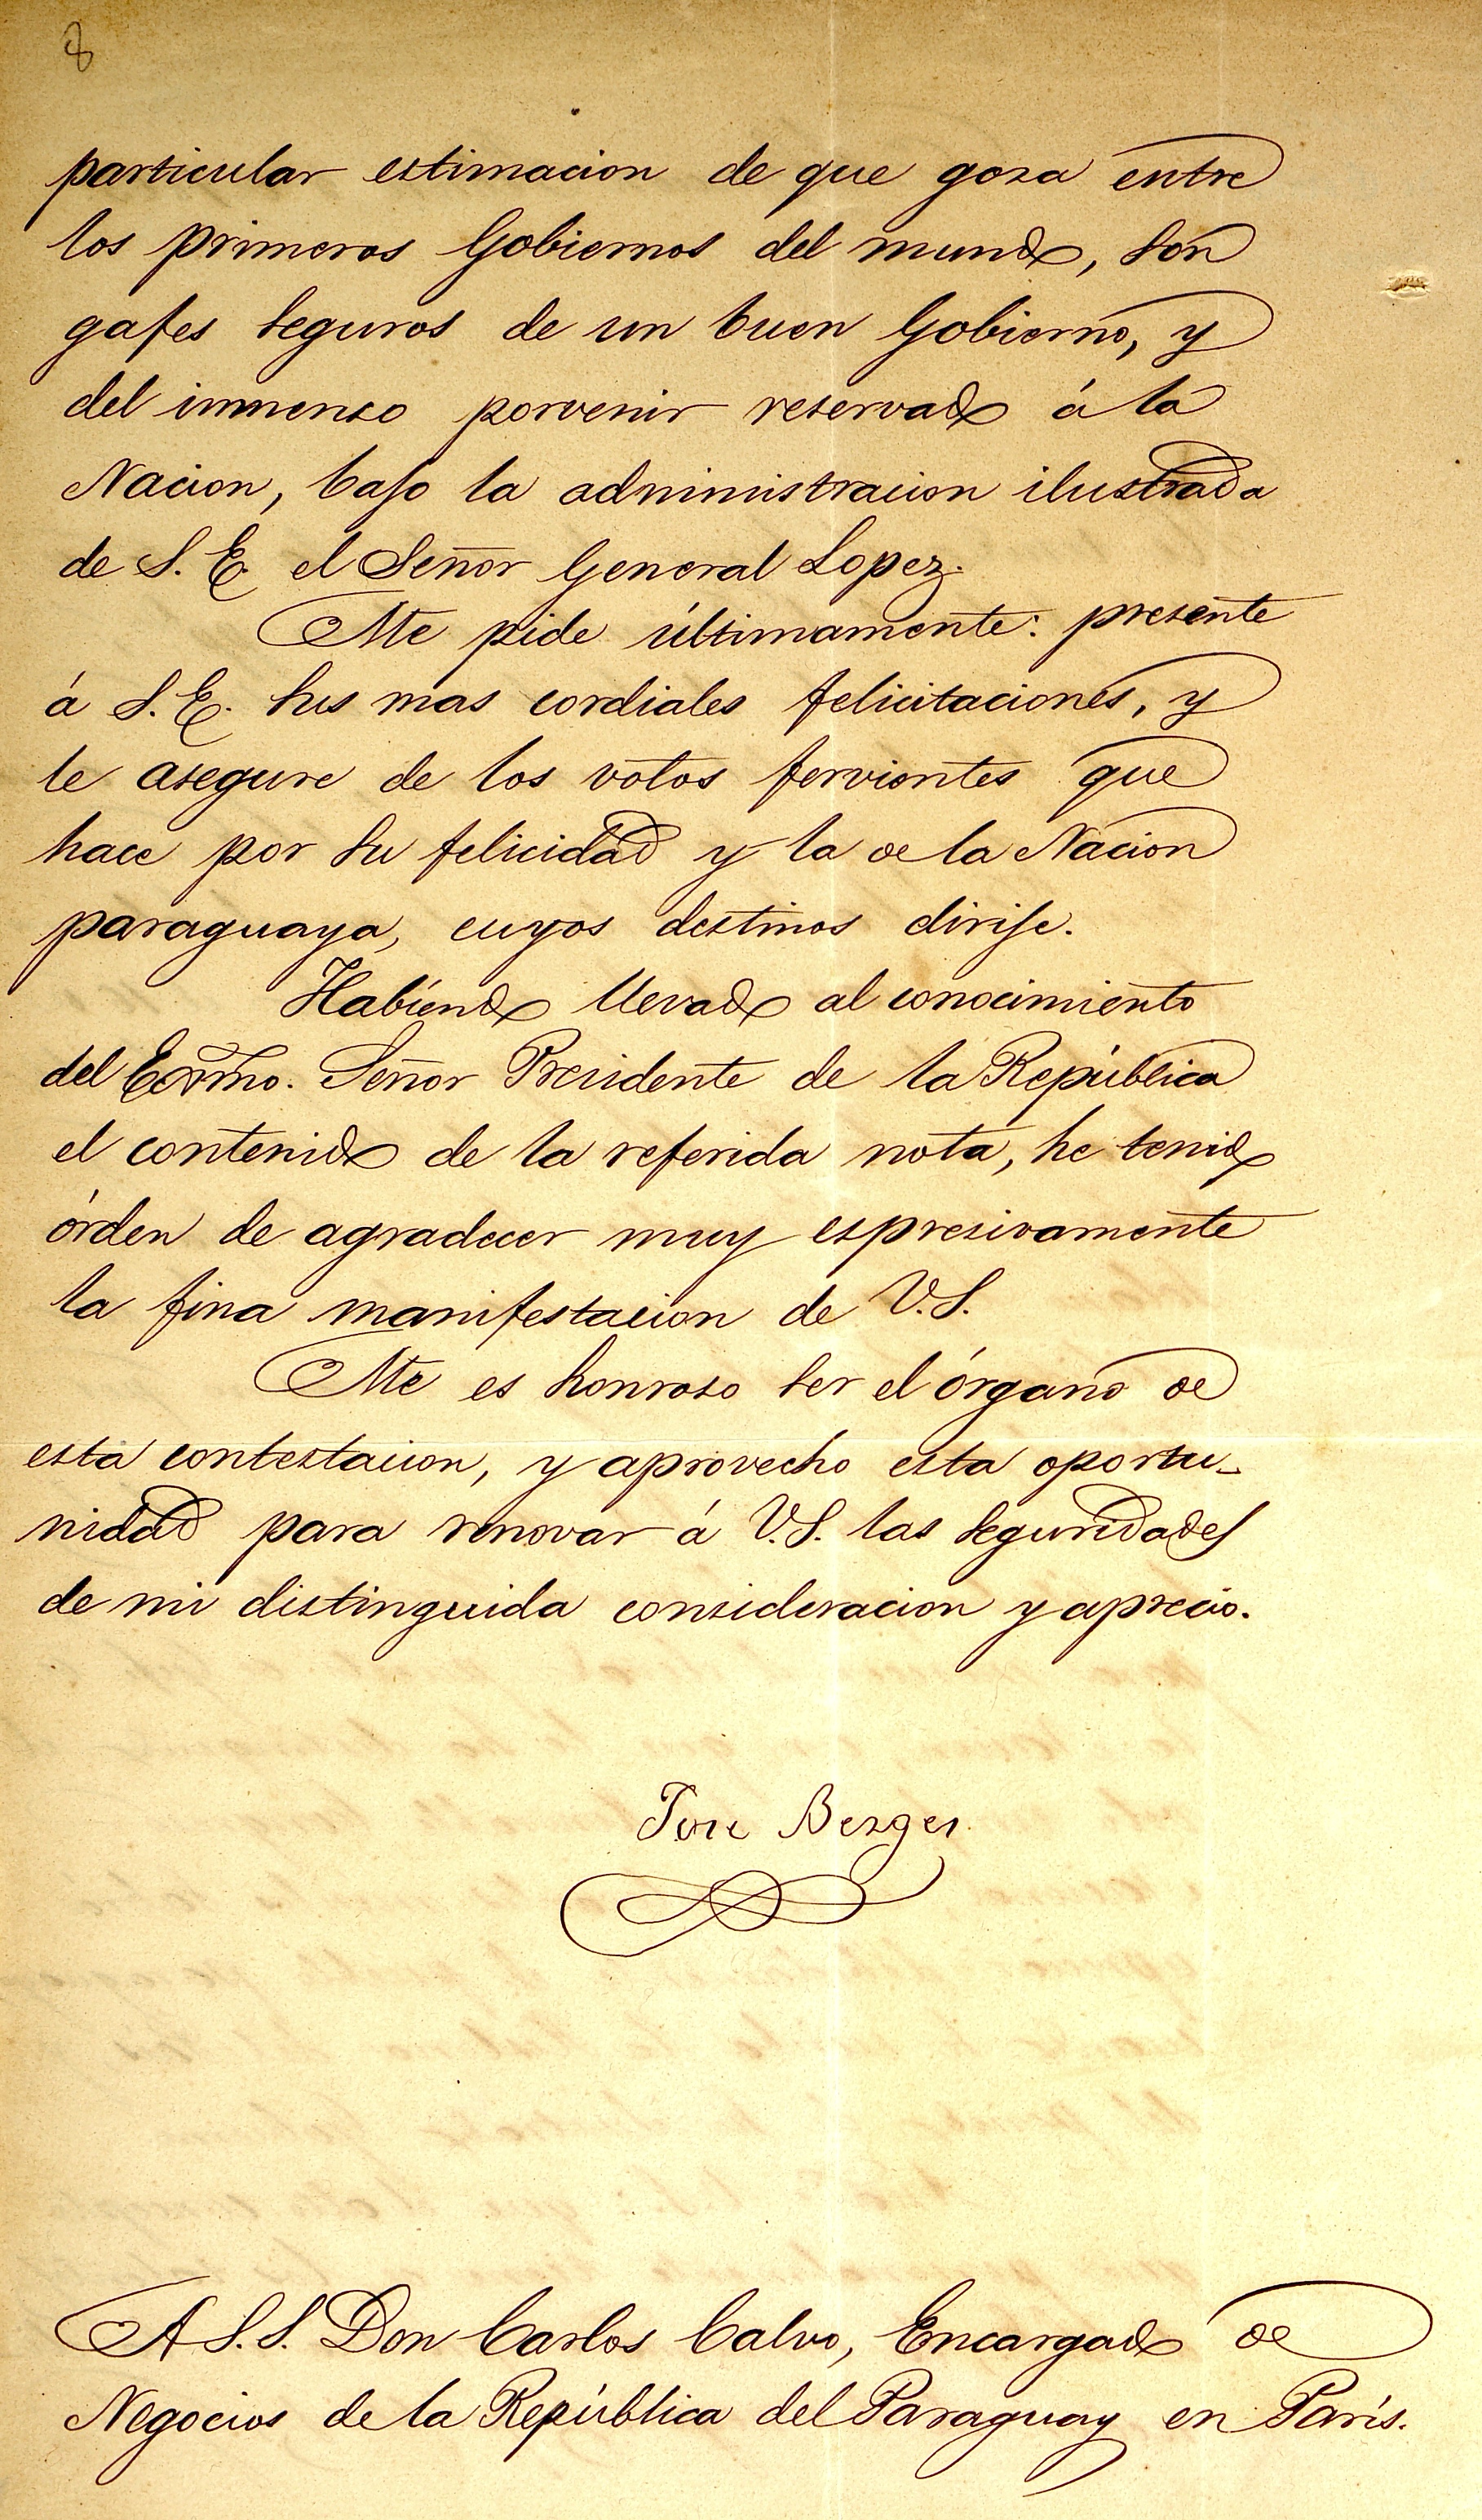 8
particular estimacion de que goza entre
los primeros Gobiernos del mundo, son
gajes seguros de un buen Gobierno, y
del inmenso porvenir reservado á la
Nacion, bajo la administracion ilustrada
de S. E. el Señor General Lopez.
Me pide últimamente: presente
á S. E. sus mas cordiales felicitaciones, y
le asegure de los votos fervientes que
hace por su felicidad y la de la Nacion
paraguaya, cuyos destinos dirije.
Habiendo llevado al conocimiento
del Exmo. Señor Presidente de la República
el contenido de la referida nota, he tenido
órden de agradecer muy espresivamente
la fina manifestacion de V. S.
Me es honroso ser el órgano de
esta contestacion, y aprovecho esta oportu-
nidad para renovar á V. S. las seguridades
de mi distinguida consideracion y aprecio.
Jose Berges
A S. S. Don Carlos Calvo, Encargado de
Negocios de la República del Paraguay en Paris.